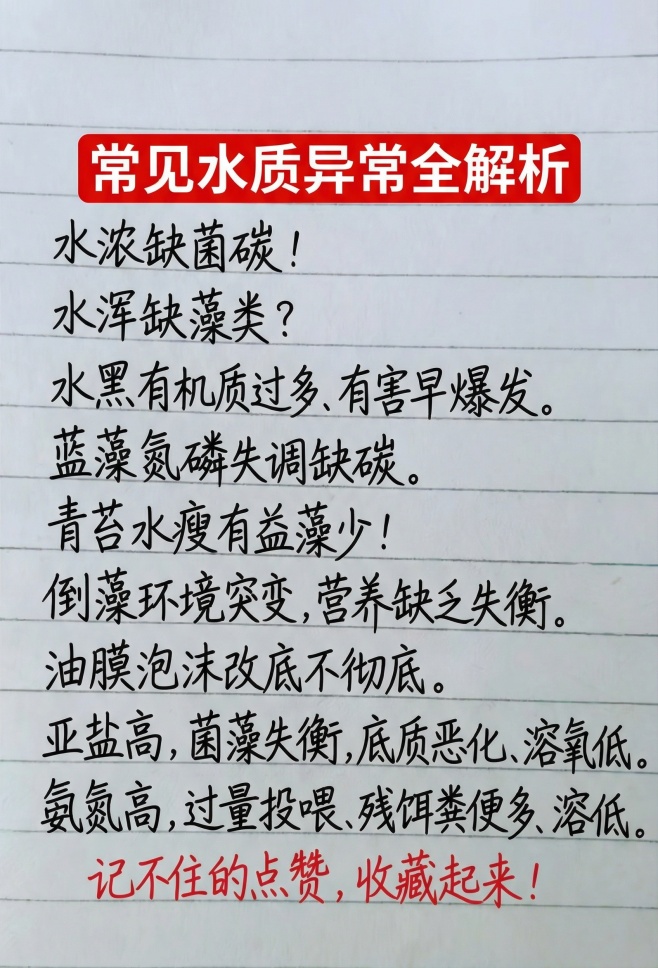 常见水质异常全解析
水浓缺菌碳！
水浑缺藻类？
水黑有机质过多、有害早爆发。
蓝藻氮磷失调缺碳。
青苔水瘦有益藻少！
倒藻环境突变，营养缺乏失衡。
油膜泡沫改底不彻底。
亚盐高，菌藻失衡，底质恶化、溶氧低。
氨氮高，过量投喂、残饵粪便多、溶低。
记不住的点赞，收藏起来！